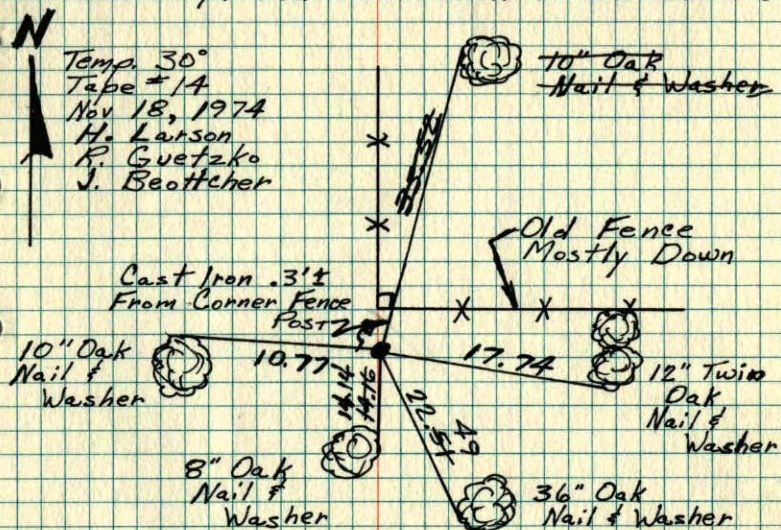 N
Temp. 30°
Tape #14
Nov 18, 1974
H. Larson
R. Guetzko
J. Beottcher
10" Oak
Nail & Washer
35.52
Old Fence
Mostly Down
Cast Iron .3'±
From Corner Fence
Post
10" Oak
Nail &
Washer
10.77
17.74
12" Twin
Oak
Nail &
Washer
14.14
14.16
22.51
49
8" Oak
Nail &
Washer
36" Oak
Nail & Washer